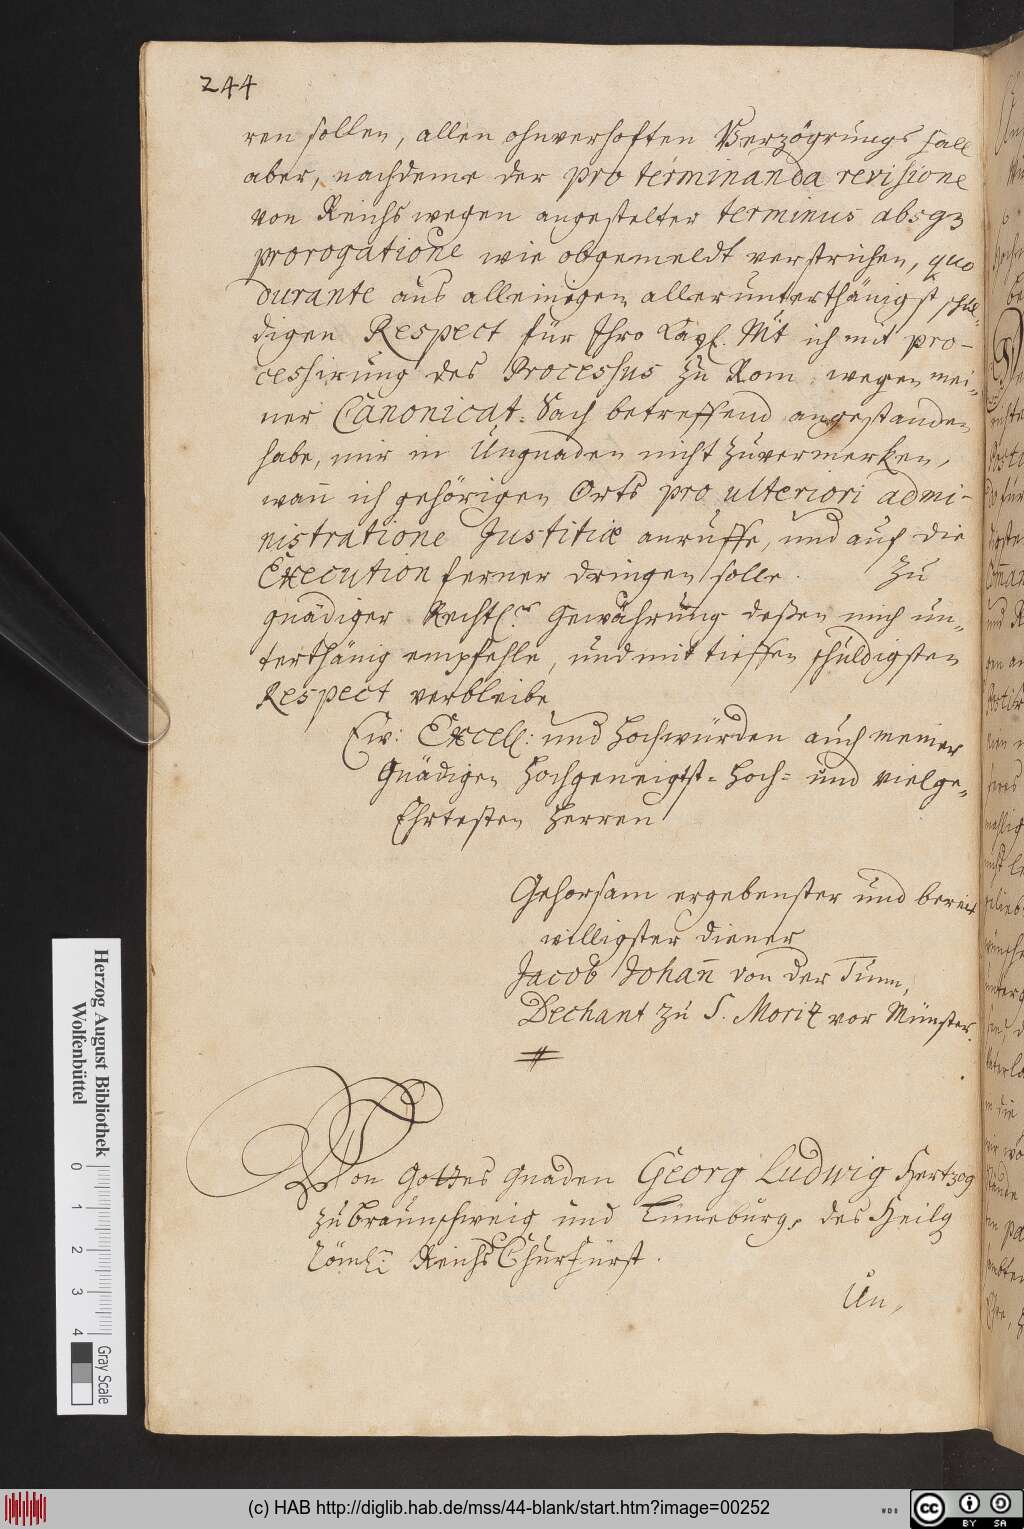 244
ren sollen, allen ohnverhofften Verzögrungs fall
aber, nachdeme der pro terminanda revisione
von Reichs wegen angestelter terminus absq3
prorogatione wie obgemeldt verstrichen, quo
durante aus alleinigen allerunterthänigst schul-
digen Respect für Ihro Kayl. Mt ich mit pro-
cessirung des Processus zu Rom wegen mei-
ner Canonicat. Sach betreffend angestanden
habe, mir in Ungnaden nicht zuvermerken,
wan̄ ich gehörigen Orts pro ulteriori admi-
nistratione Justitiæ anruffe, und auf die
Execution ferner dringen solle. Zu
gnädiger Rechtl.r Gewährung deßen mich un-
terthänig empfehle, und mit tieffen schuldigsten
Respect verbleibe
Ew: Excell: und Hochwürden auch meiner
Gnädigen Hochgeneigtst- Hoch- und vielge-
Ehrtesten Herren
Gehorsam ergebenster und bereit
willigster diener
Jacob Johan̄ von der Tinn,
Dechant zu S. Moritz vor Münster.
Von Gottes Gnaden Georg Ludwig Hertzog
zu Braunschweig und Lüneburg, des Heilg
Römh: Reichs Churfürst.
Un,
Herzog August Bibliothek
Wolfenbüttel
0 1 2 3 4
Gray Scale
(c) HAB http://diglib.hab.de/mss/44-blank/start.htm?image=00252
WDB
cc BY SA